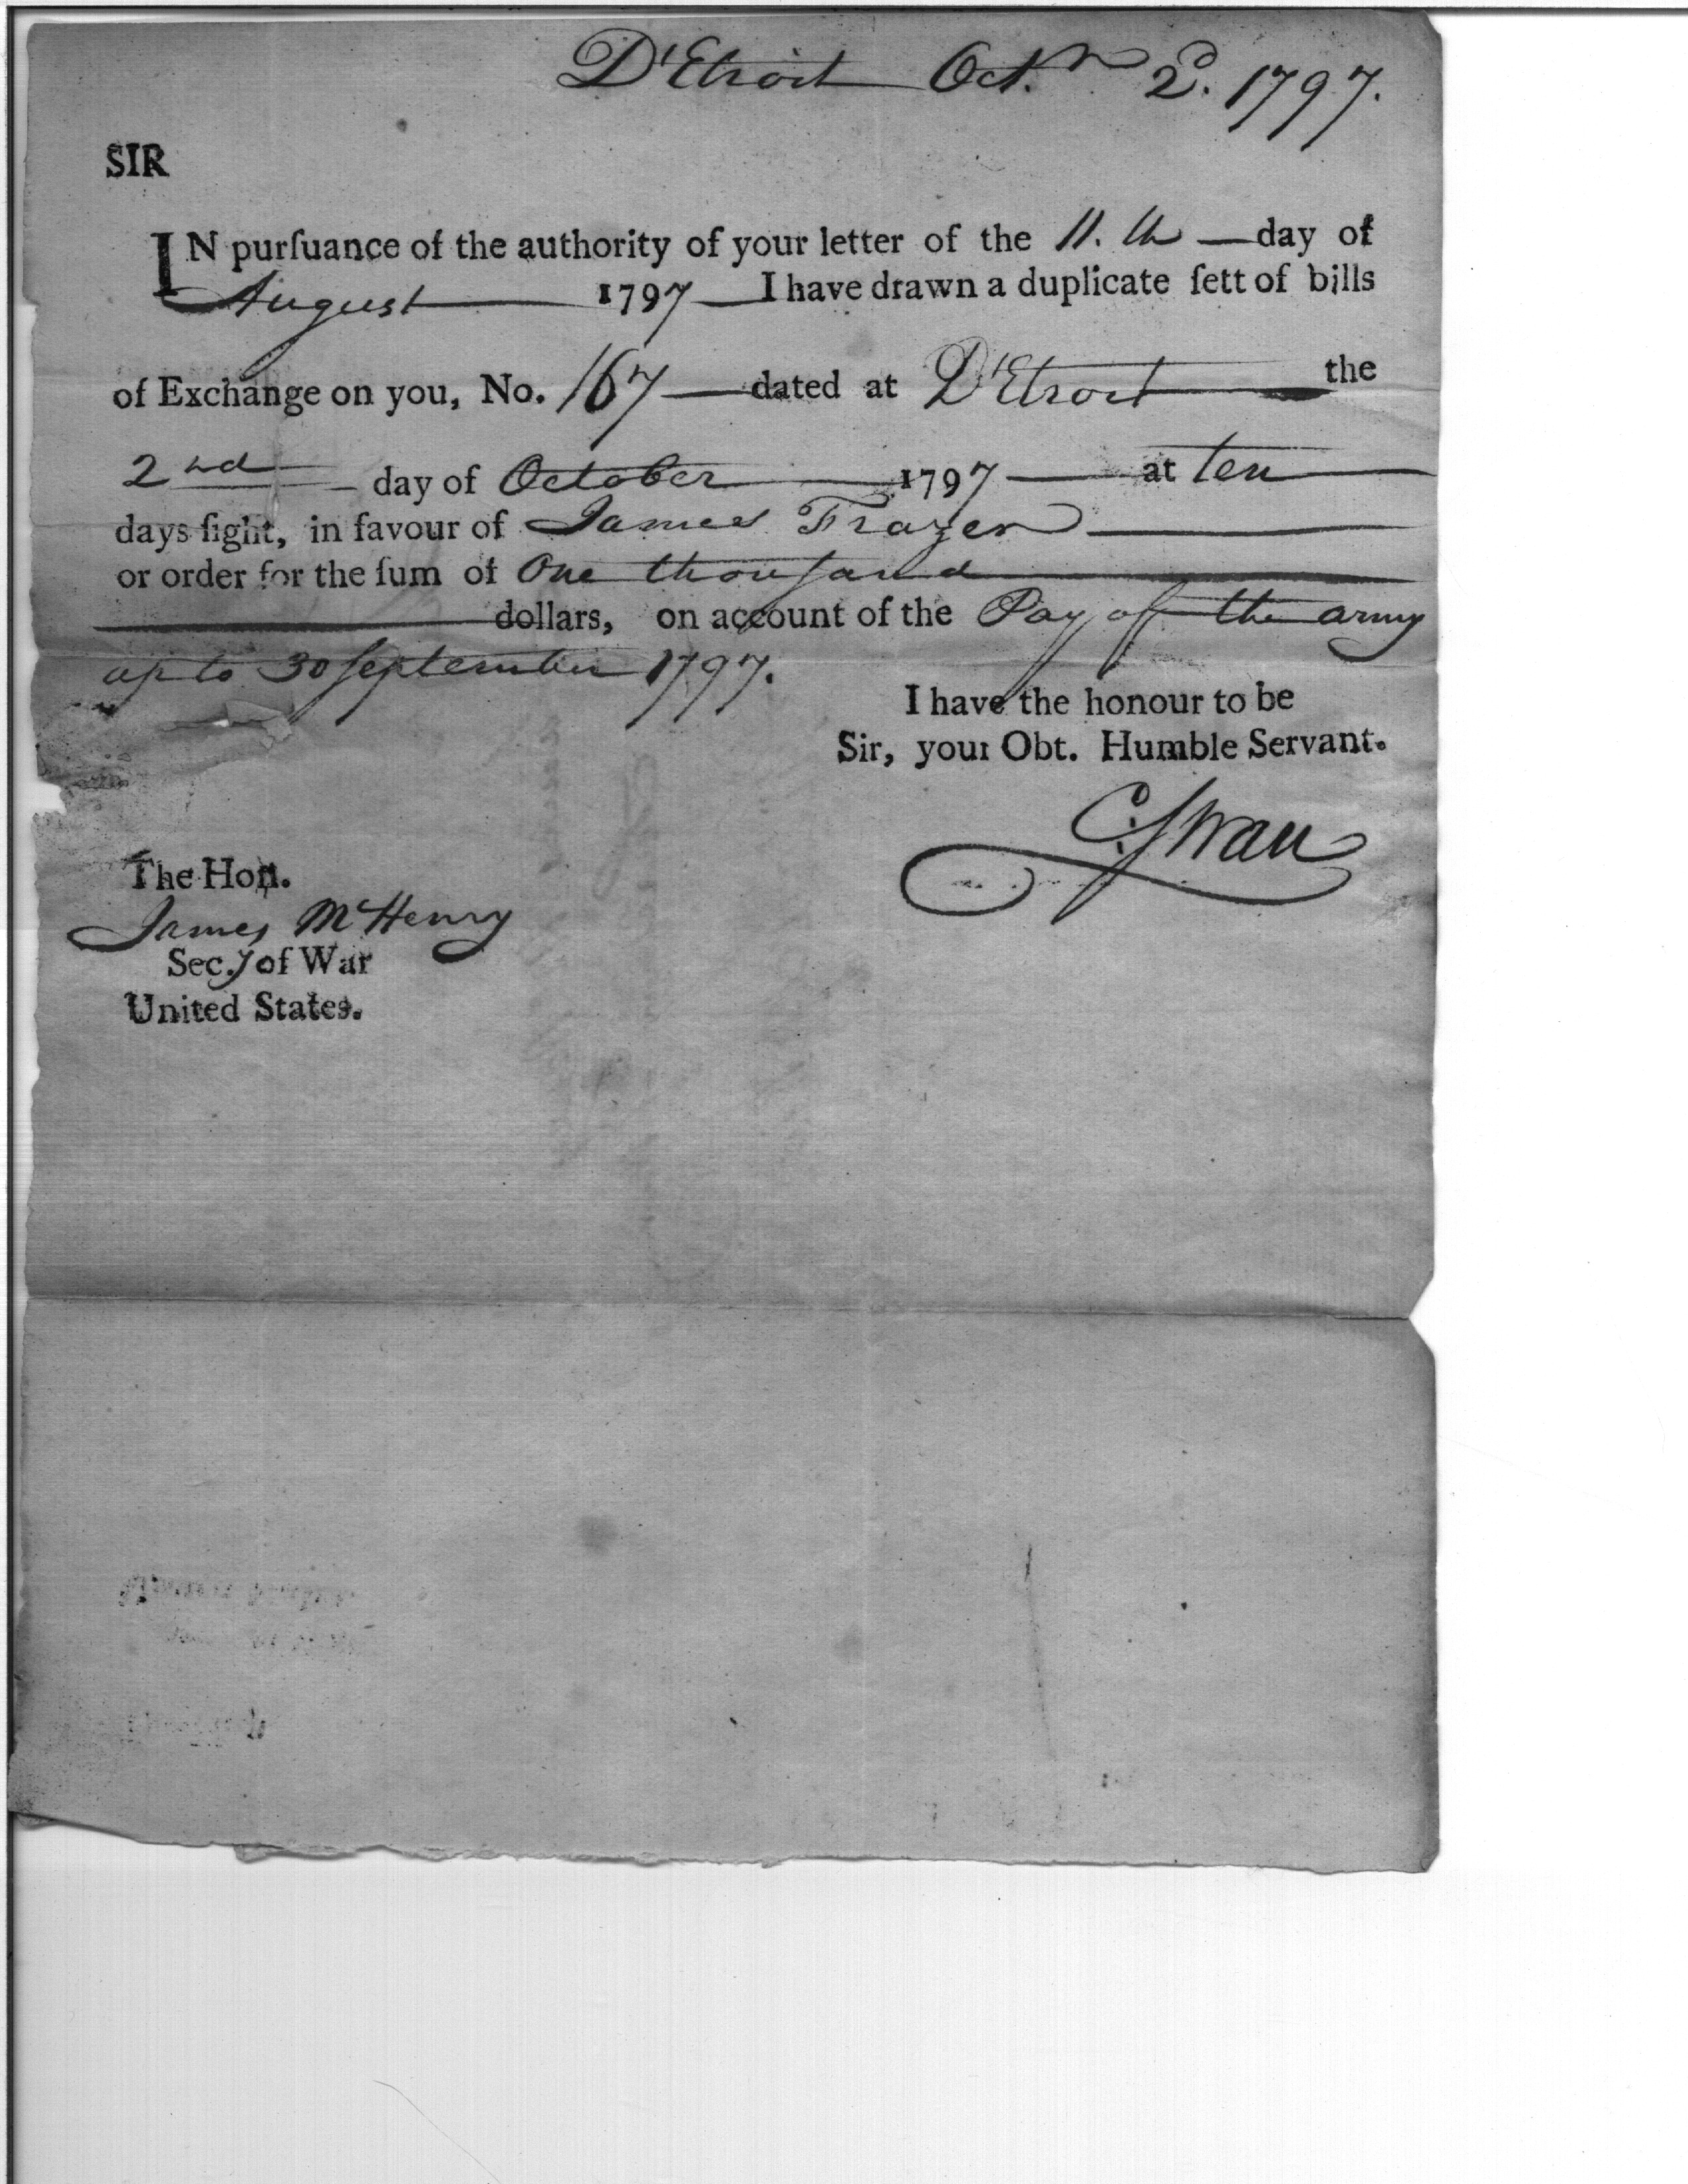 D'Etroit Oct.r 2d. 1797.
SIR
IN purſuance of the authority of your letter of the 11.th — day of
August 1797 — I have drawn a duplicate ſett of bills
of Exchange on you, No. 167 — dated at D'Etroit the
2nd day of October 1797 — at ten
days ſight, in favour of James Frazer
or order for the ſum of One thouſand
dollars, on account of the Pay of the army
up to 30 September 1797.
I have the honour to be
Sir, your Obt. Humble Servant.
C. Swan
The Hon.
James McHenry
Sec.y of War
United States.